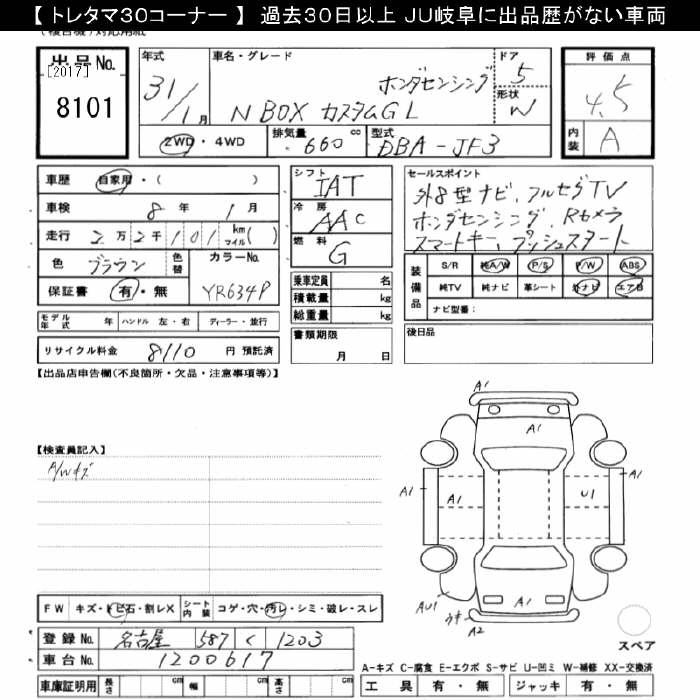 【 トレタマ30コーナー 】 過去30日以上 JU岐阜に出品歴がない車両
出品No.
[2017]
8101
年式
31/1月
車名・グレード
ホンダセンシング
N BOX カスタムGL
ドア
5
形状
W
評価点
4.5
内装
A
2WD・4WD
排気量 660 cc
型式 DBA-JF3
車歴 自家用・( )
車検 8 年 1 月
走行 2 万 2 千 1 0 1 km マイル( )
色 ブラウン 色替
カラーNo.
YR634P
保証書 有・無
シフト
IAT
冷房
AAC
燃料
G
セールスポイント
外8型ナビ、フルセグTV
ホンダセンシング、Rカメラ
スマートキー、プッシュスタート
装備品
S/R 純A/W P/S P/W ABS
純TV 純ナビ 革シート 外ナビ エアB
ナビ型番:
乗車定員 名
積載量 kg
総重量 kg
モデル年式 年 ハンドル 左・右 ディーラー・並行
リサイクル料金 8110 円 預託済
書類期限
月 日
後日品
【出品店申告欄(不良箇所・欠品・注意事項等)】
【検査員記入】
A/Wキズ
A1
A1
A1
A1
U1
A1
AU1
A1
ウキ
A2
スペア
FW キズ・トビ石・割レX シート内装 コゲ・穴・汚レ・シミ・破レ・スレ
登録No. 名古屋 587 く 1203
車台No. 1200617
車庫証明用 長さ cm 幅 cm 高さ cm
A-キズ C-腐食 E-エクボ S-サビ U-凹ミ W-補修 XX-交換済
工具 有・無 ジャッキ 有・無